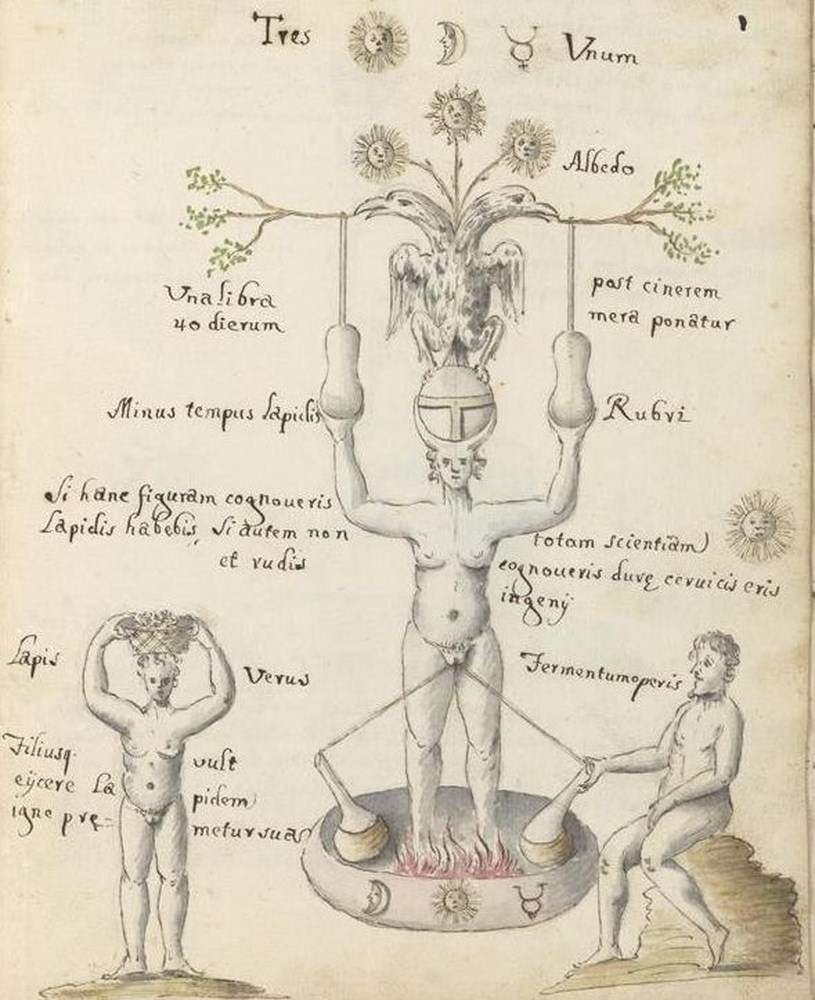 Tres Vnum
Albedo
Vna libra
40 dierum
post cinerem
mera ponatur
Minus tempus Lapidis
Rubri
Si hanc figuram cognoueris
Lapidis habebis, si autem non
et rudis
totam scientiam
cognoueris durę ceruicis eris
ingenij
Lapis
Verus
Fermentum operis
Filiusq.
eijcere La
igne prę=
vult
pidem
metur suas